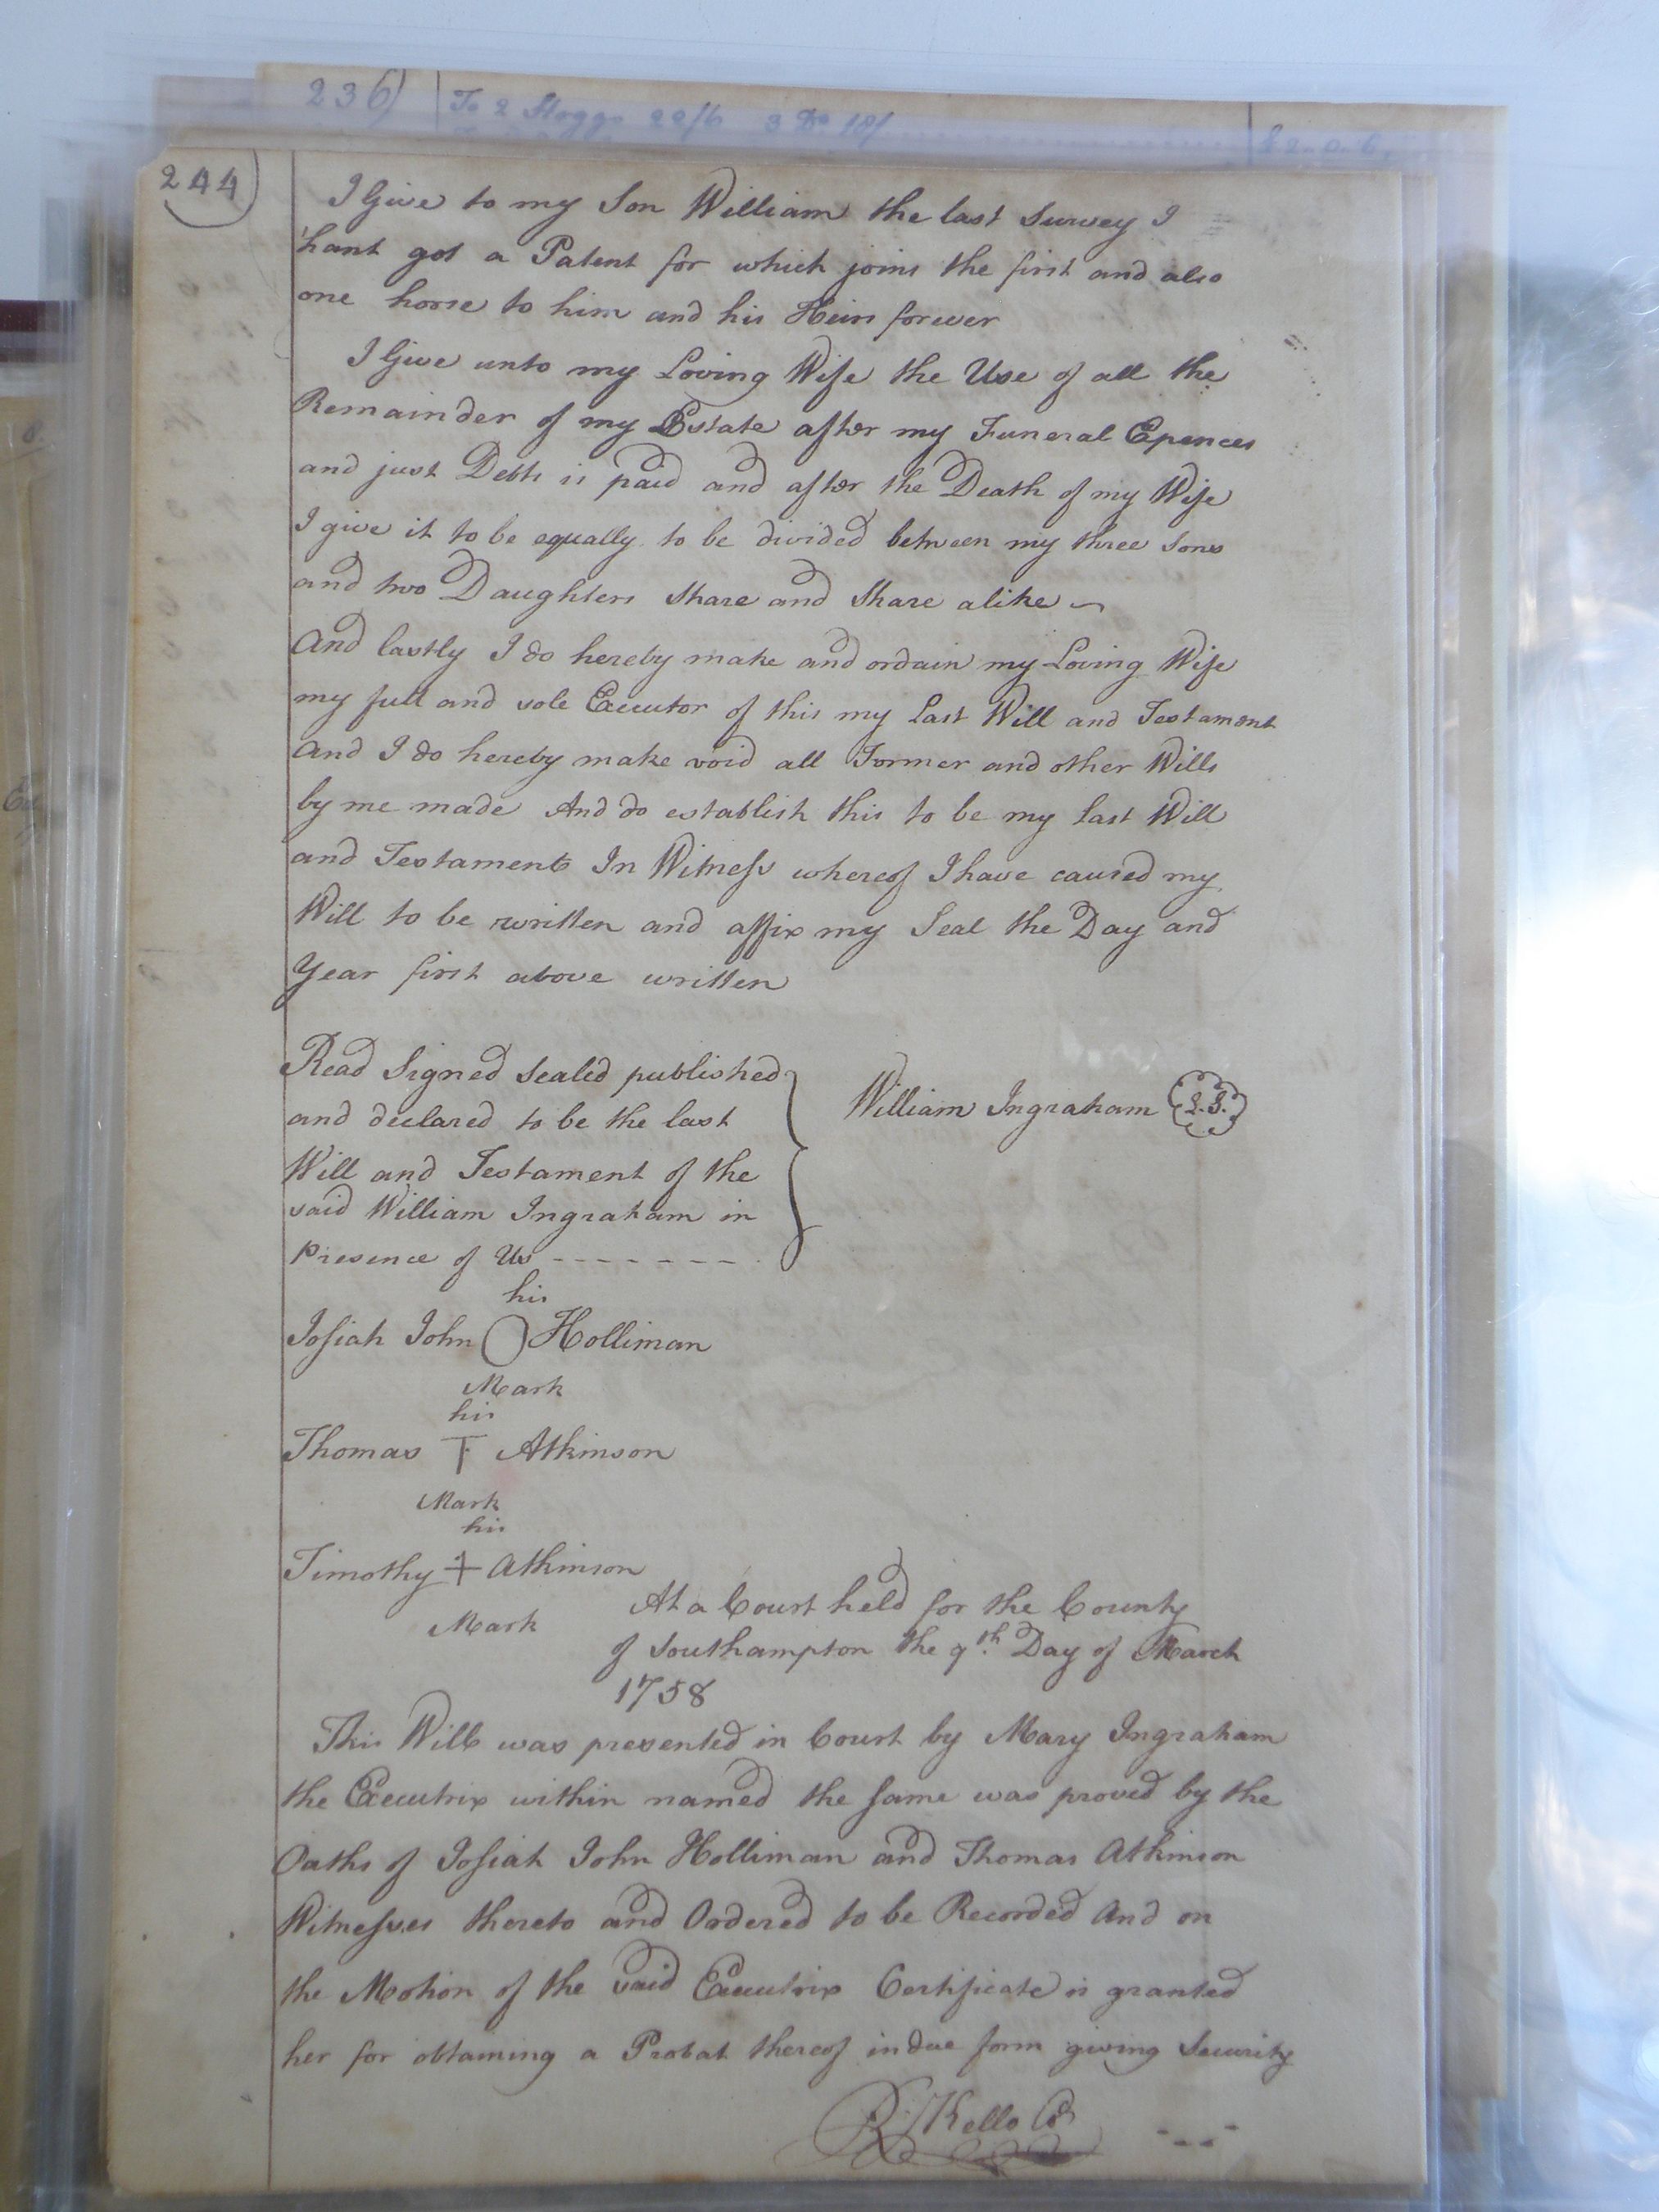 236) To 2 Hoggs 22/6 3 Do 18/ £2.0.6.
244)
I Give to my Son William the last Survey I
hant got a Patent for which joins the first and also
one horse to him and his Heirs forever
I Give unto my Loving Wife the Use of all the
Remainder of my Estate after my Funeral Epences
and just Debts is paid and after the Death of my Wife
I give it to be equally to be divided between my three Sons
and two Daughters Share and Share alike
And lastly I do hereby make and ordain my Loving Wife
my full and sole Executor of this my Last Will and Testament
And I do hereby make void all Former and other Wills
by me made And do establish this to be my last Will
and Testament In Witness whereof I have caused my
Will to be written and affix my Seal the Day and
Year first above written
Read Signed Sealed published
and declared to be the last
Will and Testament of the
said William Ingraham in
Presence of Us - - - - - - -
William Ingraham L.S.
his
Josiah John O Holliman
Mark
his
Thomas T Atkinson
Mark
his
Timothy + Atkinson
Mark
At a Court held for the County
of Southampton the 9th. Day of March
1758
This Will was presented in Court by Mary Ingraham
the Executrix within named the same was proved by the
Oaths of Josiah John Holliman and Thomas Atkinson
Witnesses thereto and Ordered to be Recorded And on
the Motion of the said Executrix Certificate is granted
her for obtaining a Probat thereof in due form giving Security
R Kello Cl